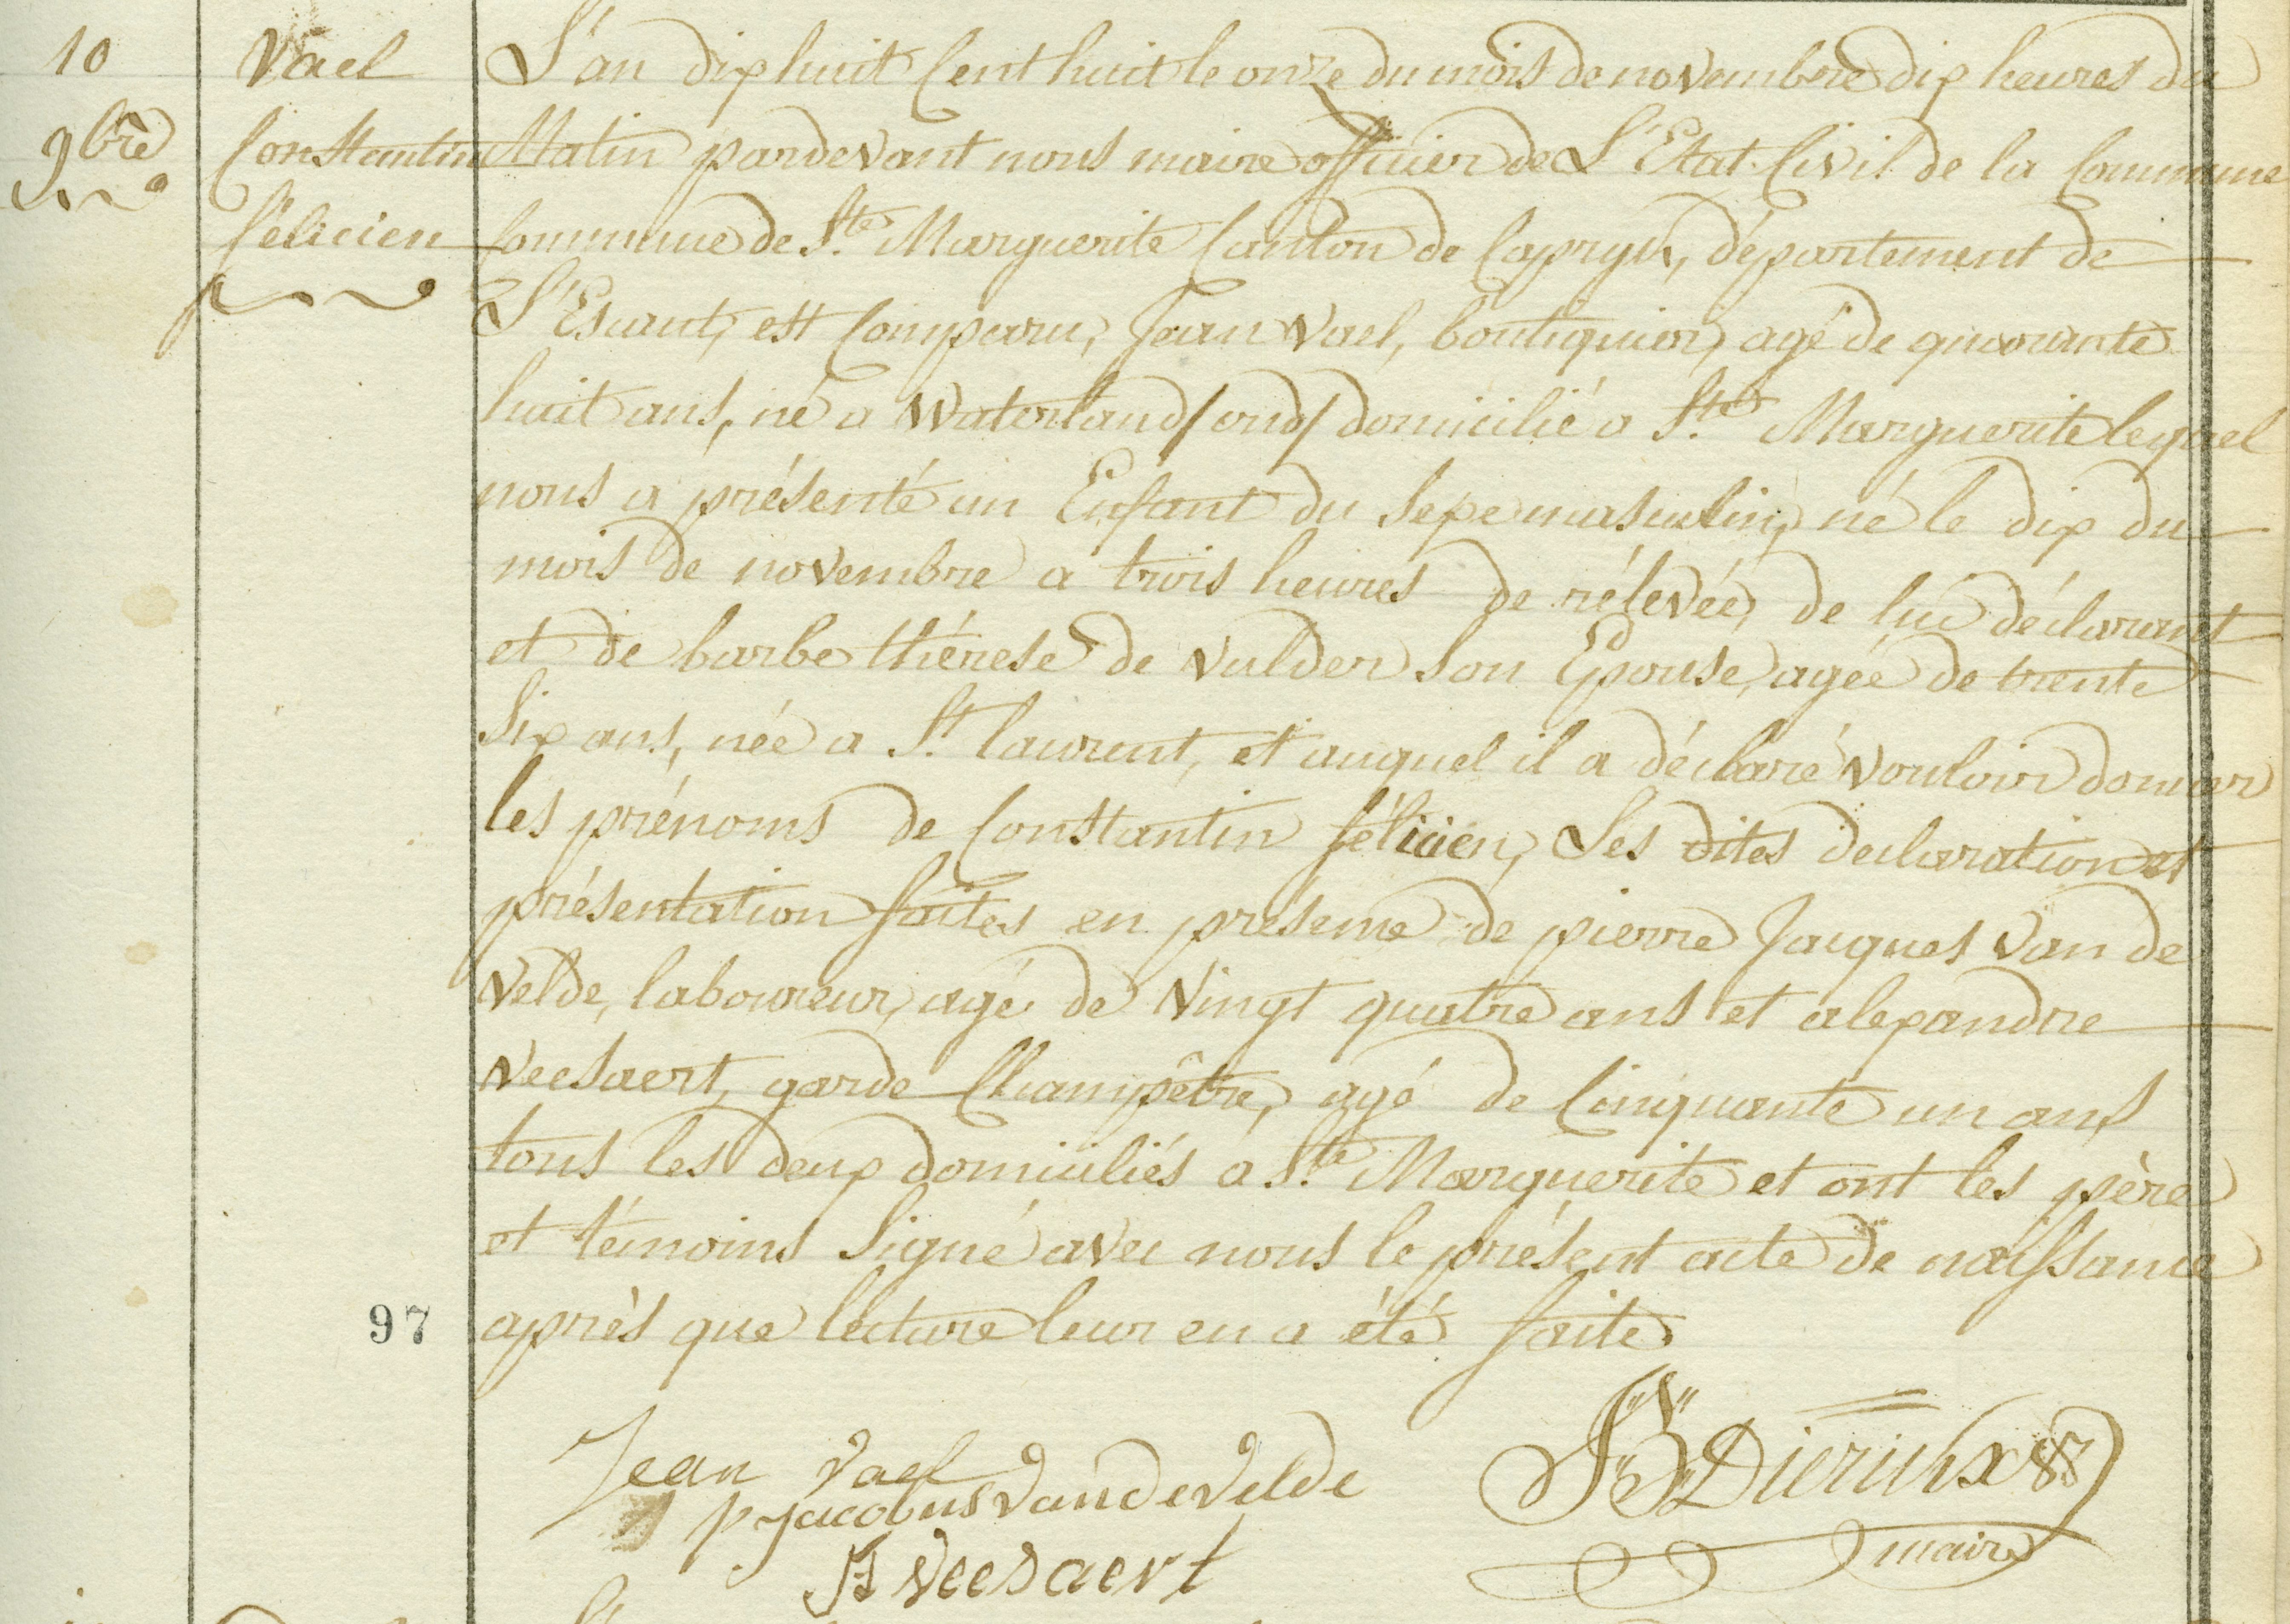 10
9bre
Vael
Constantin
félicien
L'an dix huit Cent huit le onze du mois de novembre dix heures du
Matin pardevant nous maire officier de L'Etat-Civil de la Commune
Commune de Ste Marguerite Canton de Capryk, département de
L'Escaut, est Comparu, Jean Vael, boutiquier, agé de quarante
huit ans, né a Waterland/oud/ domicilié a Ste Marguerite lequel
nous a présenté un Enfant du Sexe masculin, né le dix du
mois de novembre a trois heures de rélevée, de lui déclarant
et de barbe thérese de vulder son Epouse, agée de trente
Six ans, née a St laurent, et auquel il a déclaré vouloir donner
les prénoms de Constantin félicien, Les dites declaration et
présentation faites en présence de pierre Jacques Van de
Velde, laboureur, agé de Vingt quatre ans et alexandre
Veesaert, garde Champêtre, agé de Cinquante un ans
tous les deux domiciliés a Ste Marguerite et ont les père
et témoins Signé avec nous le présent acte de naissance
après que lecture leur en a été faite.
97
Jean Vael
pjacobus Van de Velde
Veesaert
JB Dierickx
maire